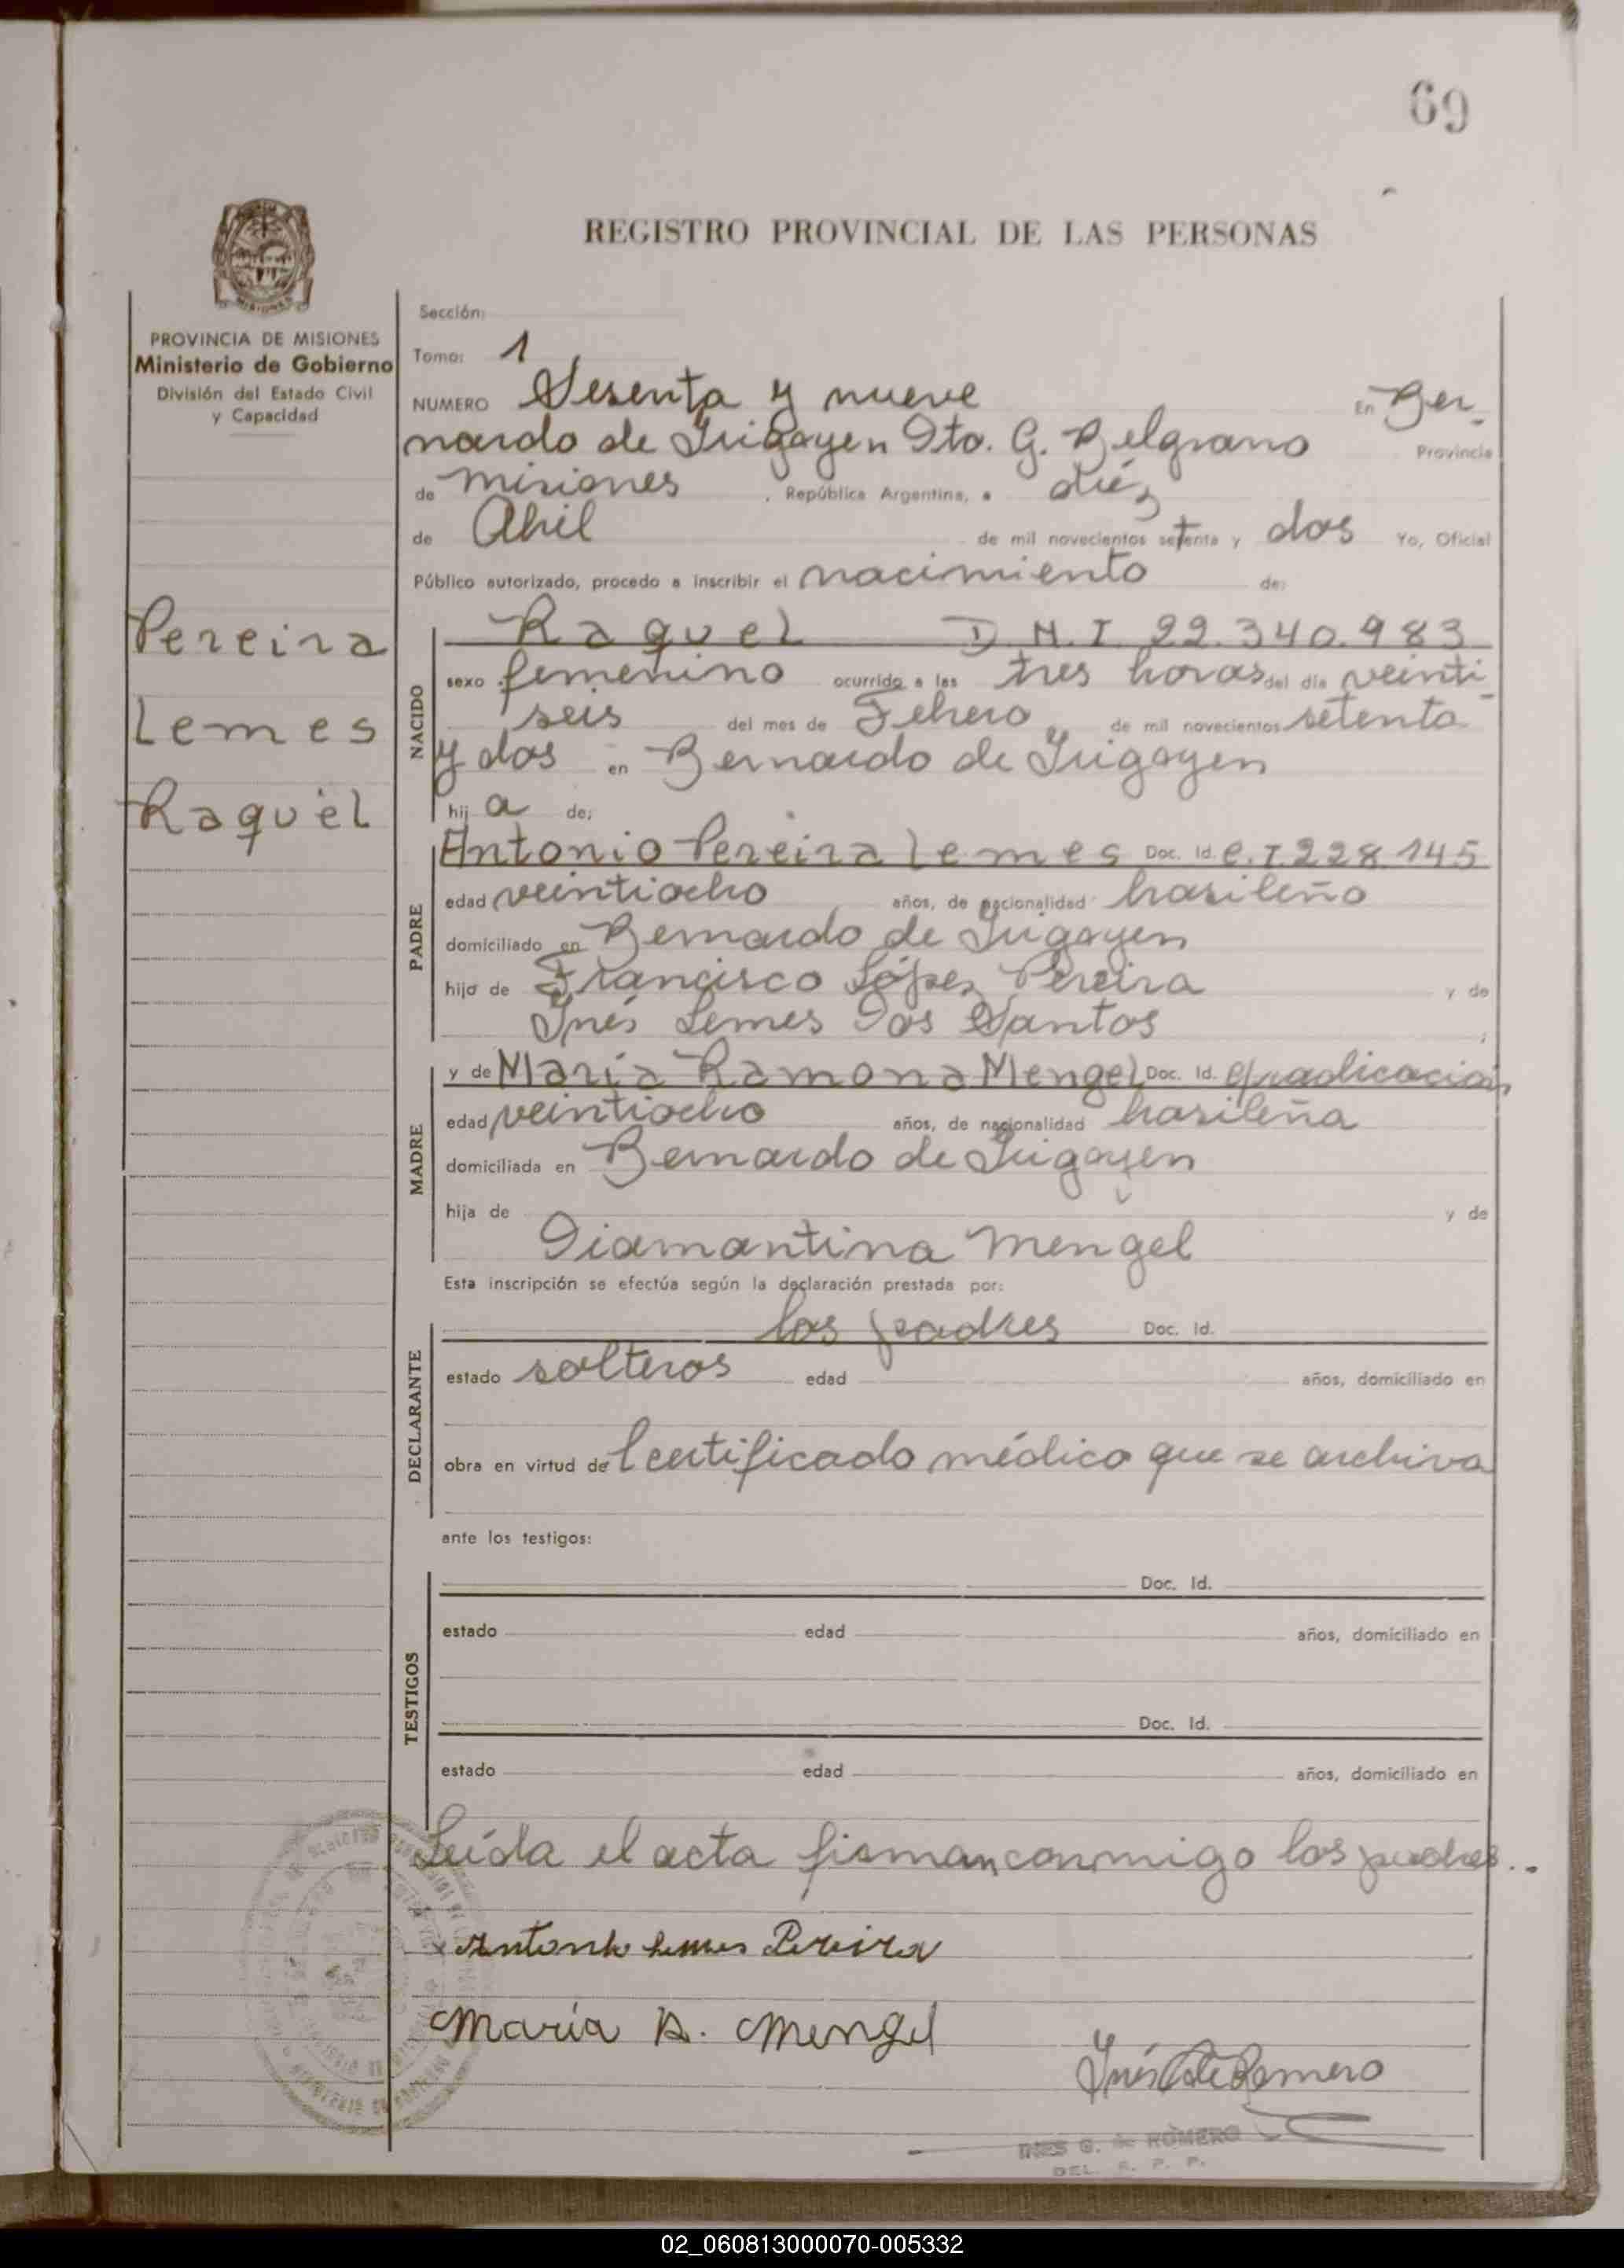 69
REGISTRO PROVINCIAL DE LAS PERSONAS
PROVINCIA DE MISIONES
Ministerio de Gobierno
División del Estado Civil
y Capacidad
Sección:
Tomo: 1
NUMERO Sesenta y nueve En Ber-
nardo de Irigoyen Dto. G. Belgrano Provincia
de Misiones, República Argentina, a diéz
de Abril de mil novecientos setenta y dos Yo, Oficial
Público autorizado, procedo a inscribir el nacimiento de:
Pereira
Lemes
Raquel
NACIDO
Raquel D.N.I 22.340.983
sexo femenino ocurrido a las tres horas del día veinti-
seis del mes de Febrero de mil novecientos setenta
y dos en Bernardo de Irigoyen
hij a de:
PADRE
Antonio Pereira Lemes Doc. Id. C.I. 228.145
edad veintiocho años, de nacionalidad brasileño
domiciliado en Bernardo de Irigoyen
hijo de Francisco López Pereira y de
Inés Lemes Dos Santos
MADRE
y de María Ramona Mengel Doc. Id. c/radicación
edad veintiocho años, de nacionalidad brasileña
domiciliada en Bernardo de Irigoyen
hija de y de
Diamantina Mengel
Esta inscripción se efectúa según la declaración prestada por:
DECLARANTE
los padres Doc. Id.
estado solteros edad años, domiciliado en
obra en virtud de Certificado médico que se archiva
ante los testigos:
TESTIGOS
Doc. Id.
estado edad años, domiciliado en
Doc. Id.
estado edad años, domiciliado en
Leída el acta firman conmigo los padres..
x Antonio Lemes Pereira
María R. Mengel
Inés G de Romero
INES G. de ROMERO
DEL. R. P. P.
02_060813000070-005332